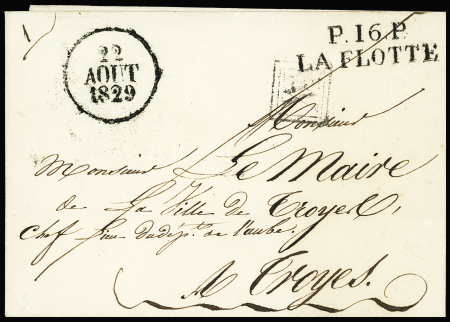 22
AOUT
1829
P.16.P.
LA FLOTTE
Monsieur
Monsieur Le Maire
de La Ville de Troyes,
Chef lieu du dép.t de l'aube.
A Troyes.